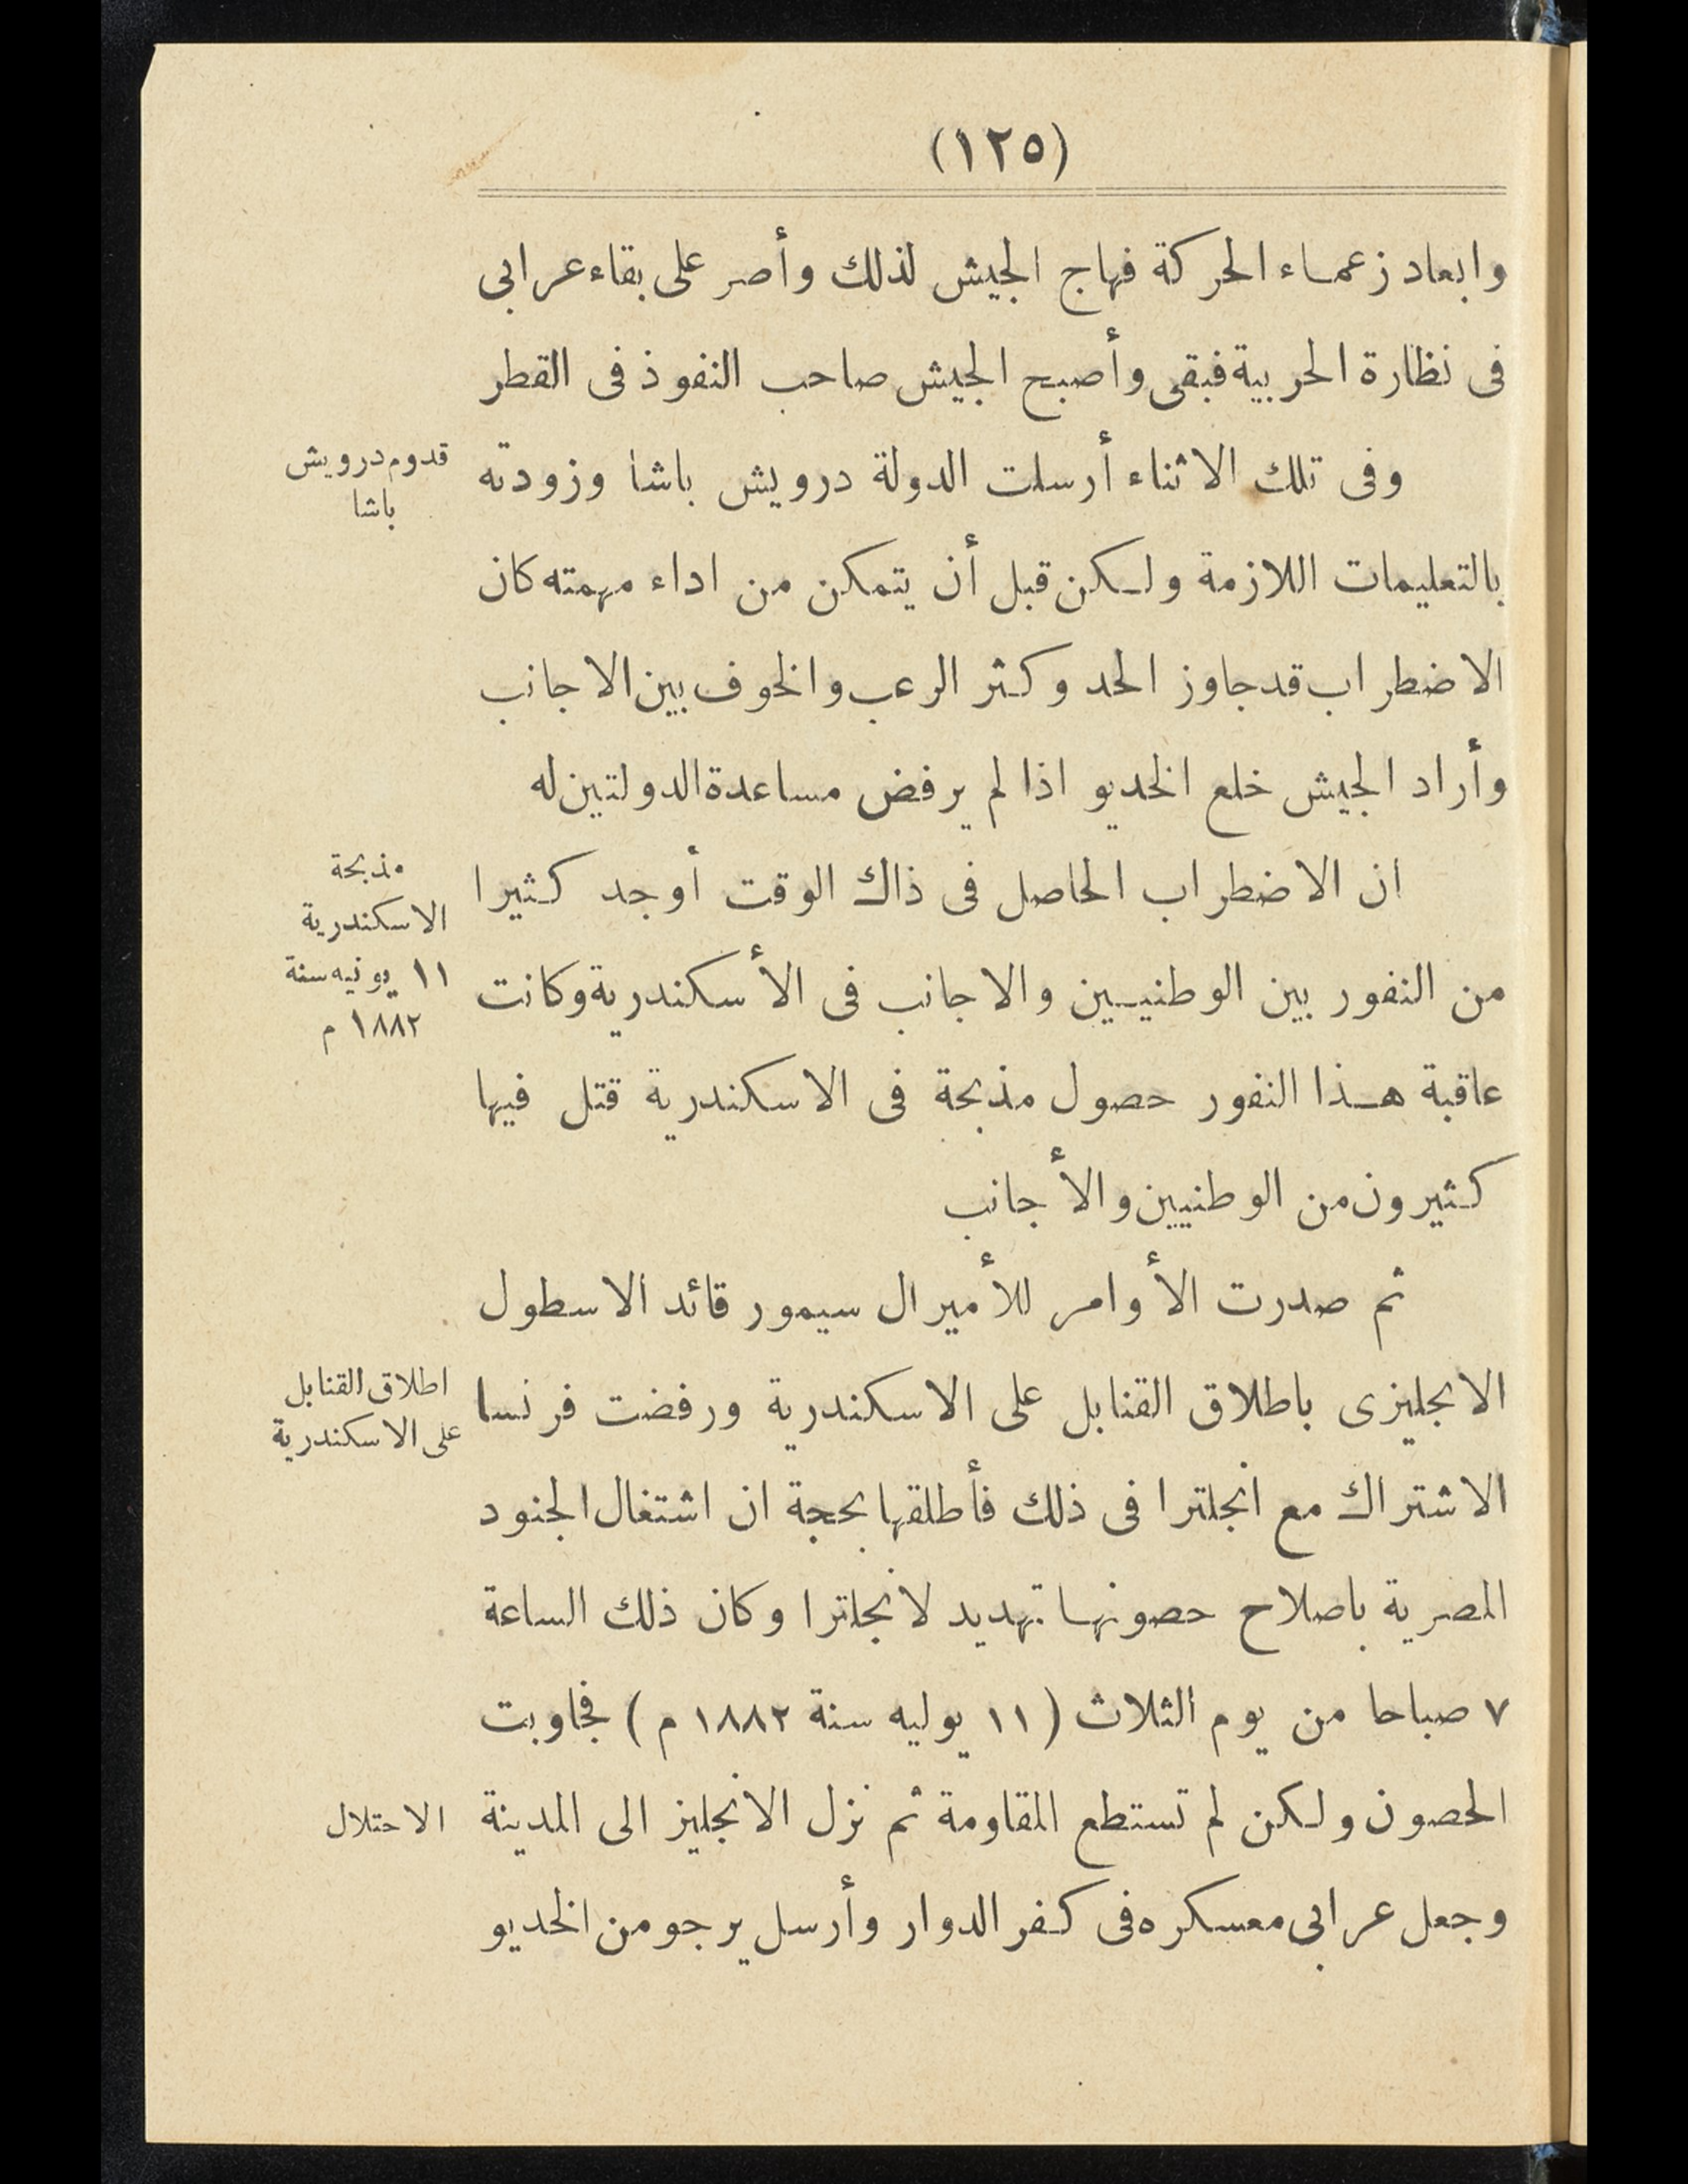 (١٢٥)
وابعاد زعماء الحركة فهاج الجيش لذلك وأصر على بقاء عرابى
فى نظارة الحربية فبقى وأصبح الجيش صاحب النفوذ فى القطر
قدوم درويش
باشا
وفى تلك الاثناء أرسلت الدولة درويش باشا وزودته
بالتعليمات اللازمة ولكن قبل أن يتمكن من اداء مهمته كان
الاضطراب قد جاوز الحد وكثر الرعب والخوف بين الاجانب
وأراد الجيش خلع الخديو اذا لم يرفض مساعدة الدولتين له
مذبحة
الاسكندرية
١١ يونيه سنة
١٨٨٢ م
ان الاضطراب الحاصل فى ذاك الوقت أوجد كثيرا
من النفور بين الوطنيين والاجانب فى الأسكندرية وكانت
عاقبة هذا النفور حصول مذبحة فى الاسكندرية قتل فيها
كثيرون من الوطنيين والأجانب
ثم صدرت الأوامر للأميرال سيمور قائد الاسطول
اطلاق القنابل
على الاسكندرية
الانجليزى باطلاق القنابل على الاسكندرية ورفضت فرنسا
الاشتراك مع انجلترا فى ذلك فأطلقها بحجة ان اشتغال الجنود
المصرية باصلاح حصونها تهديد لانجلترا وكان ذلك الساعة
٧ صباحا من يوم الثلاث (١١ يوليه سنة ١٨٨٢ م) فجاوبت
الحصون ولكن لم تستطع المقاومة ثم نزل الانجليز الى المدينة
الاحتلال
وجعل عرابى معسكره فى كفر الدوار وأرسل يرجو من الخديو